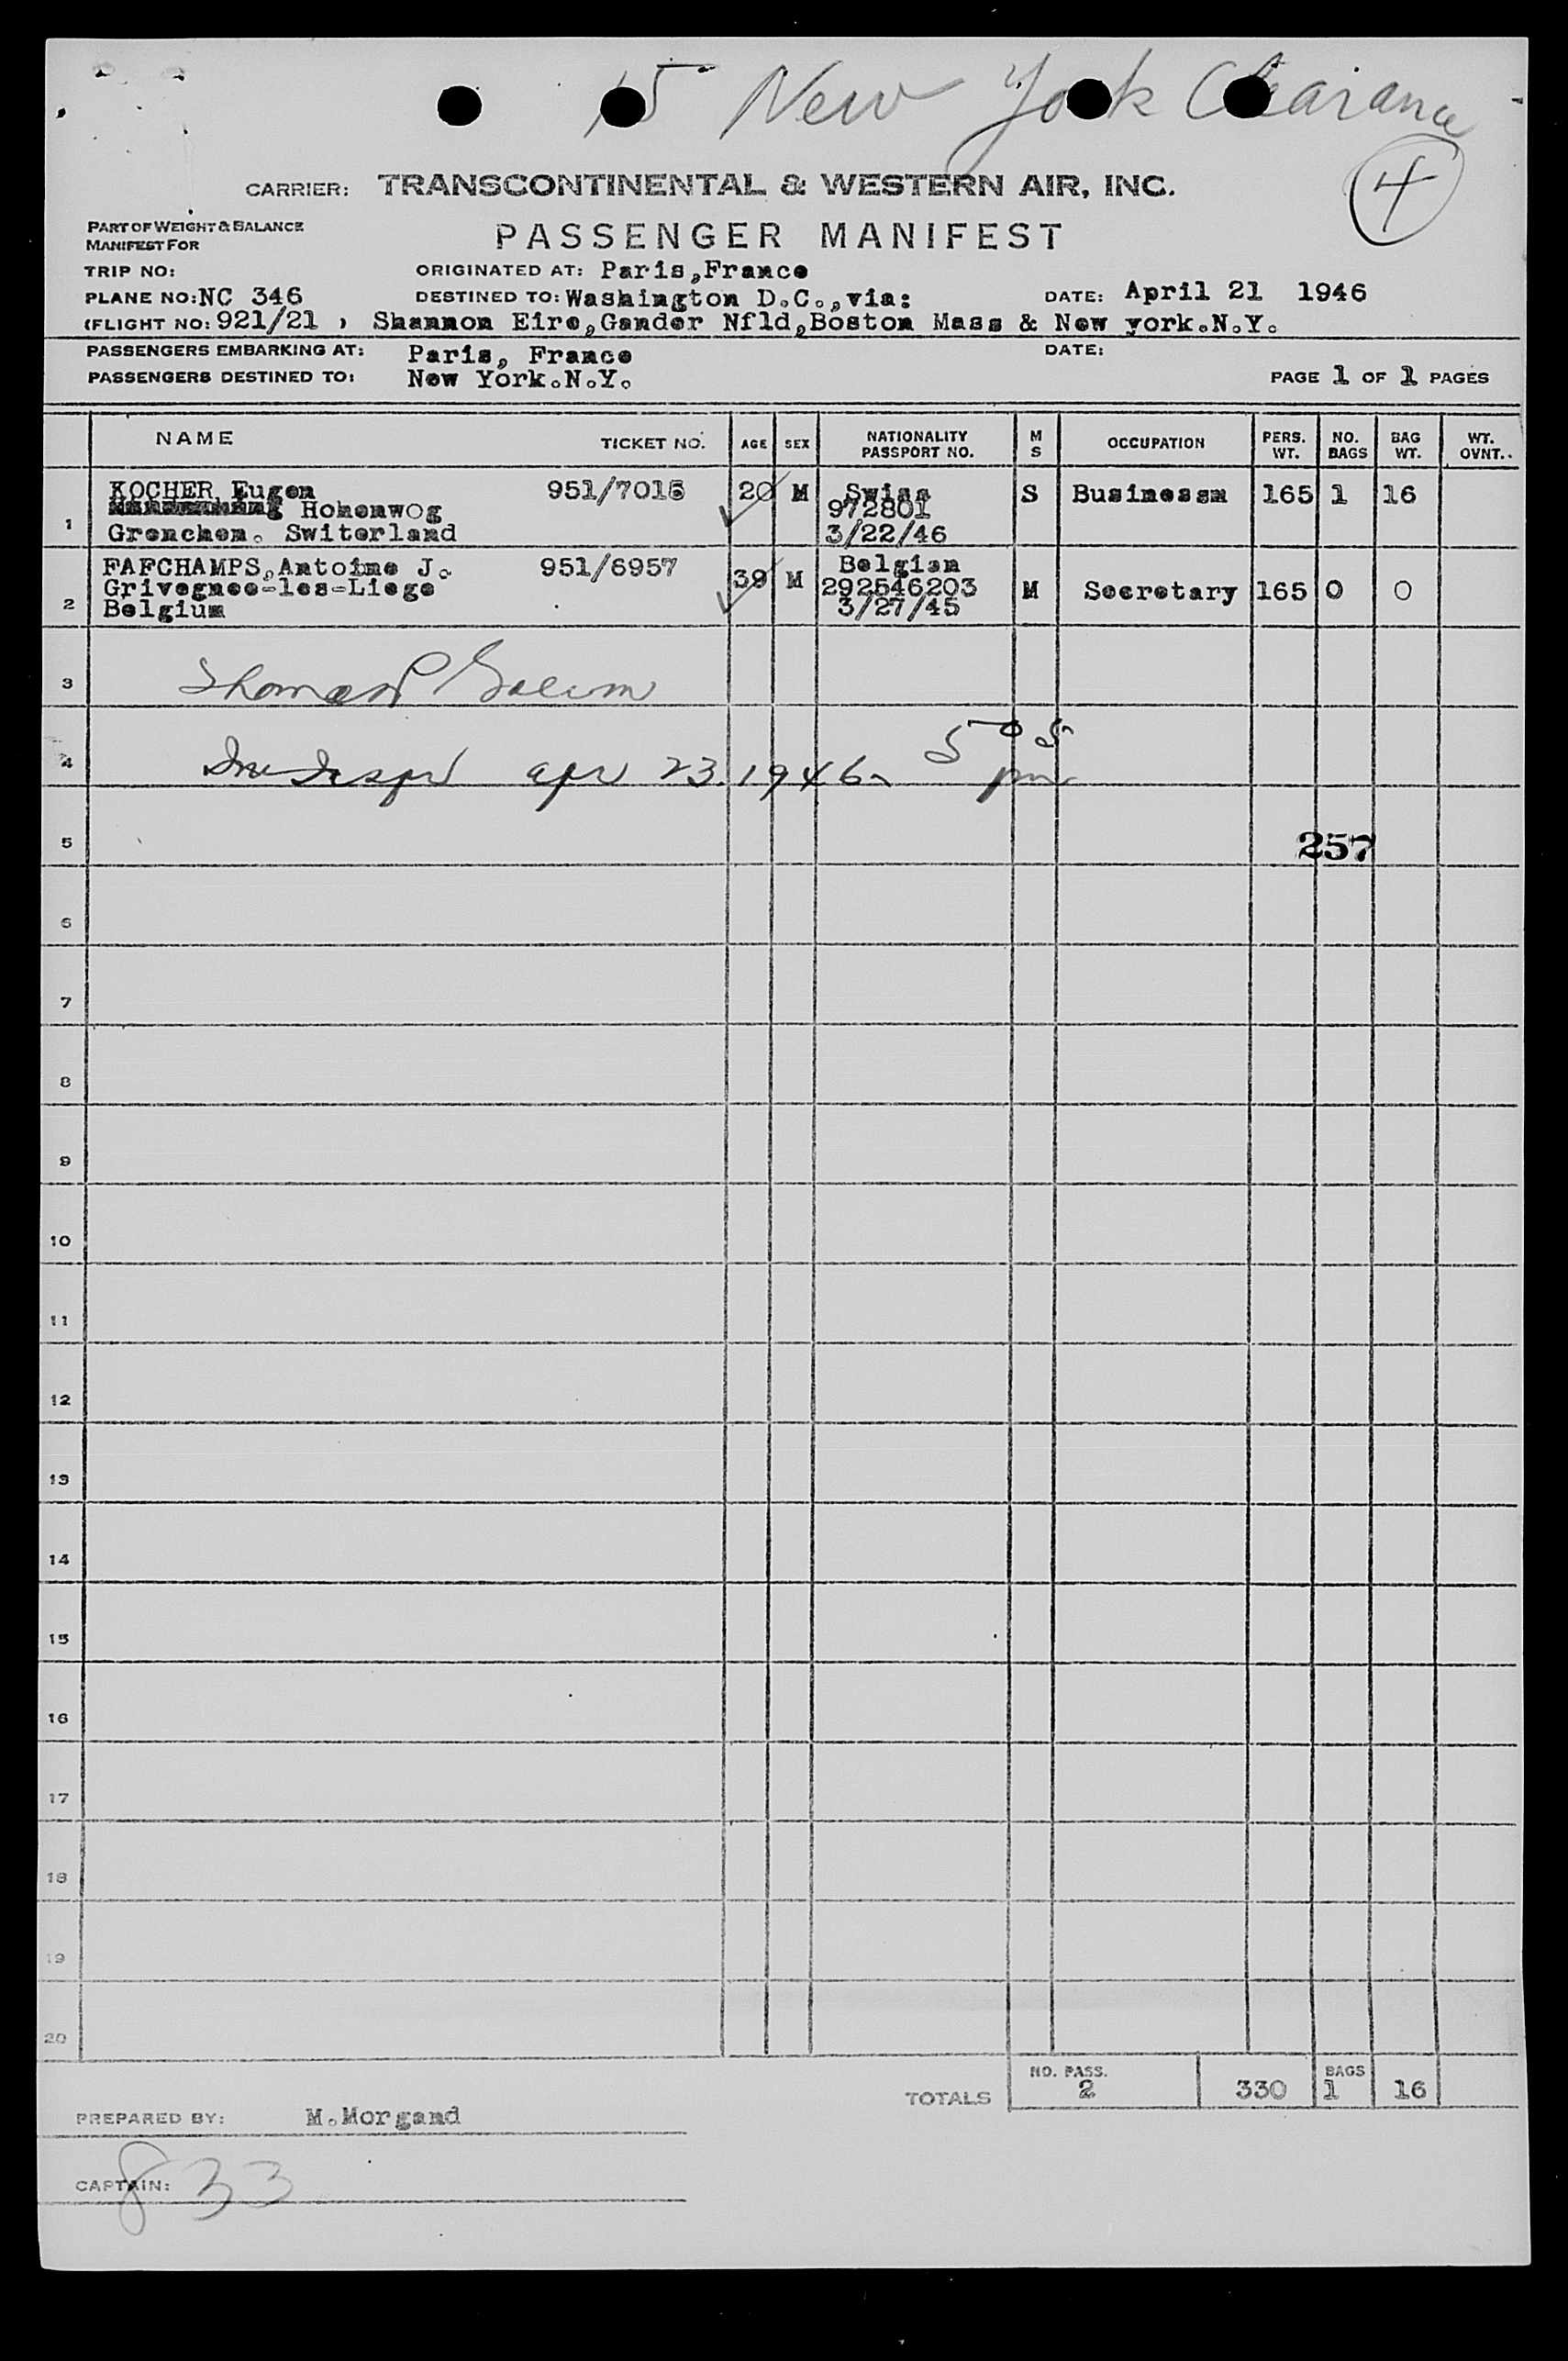 15 New York Clearance
4
CARRIER: TRANSCONTINENTAL & WESTERN AIR, INC.
PART OF WEIGHT & BALANCE
MANIFEST FOR
PASSENGER MANIFEST
TRIP NO: ORIGINATED AT: Paris,France
PLANE NO: NC 346 DESTINED TO: Washington D.C.,via: DATE: April 21 1946
(FLIGHT NO: 921/21 , Shannon Eire,Gander Nfld,Boston Mass & New york.N.Y.
PASSENGERS EMBARKING AT: Paris, France DATE:
PASSENGERS DESTINED TO: New York.N.Y. PAGE 1 OF 1 PAGES
NAME TICKET NO. AGE SEX NATIONALITY PASSPORT NO. M S OCCUPATION PERS. WT. NO. BAGS BAG WT. WT. OVNT..
KOCHER, Eugen 951/7015 20 M Swiss S Businessm 165 1 16
Hohenweg 972801
1 Grenchen. Switerland 3/22/46
FAFCHAMPS,Antoine J. 951/6957 39 M Belgian
Grivegnee-les-Liege 292546203 M Secretary 165 0 0
2 Belgium 3/27/45
3 Thomas P
4 Insp apr 23.1946 5 05 pm
5 257
6
7
8
9
10
11
12
13
14
15
16
17
18
19
20
TOTALS NO. PASS. 2 330 BAGS 1 16
PREPARED BY: M.Morgand
CAPTAIN: 833